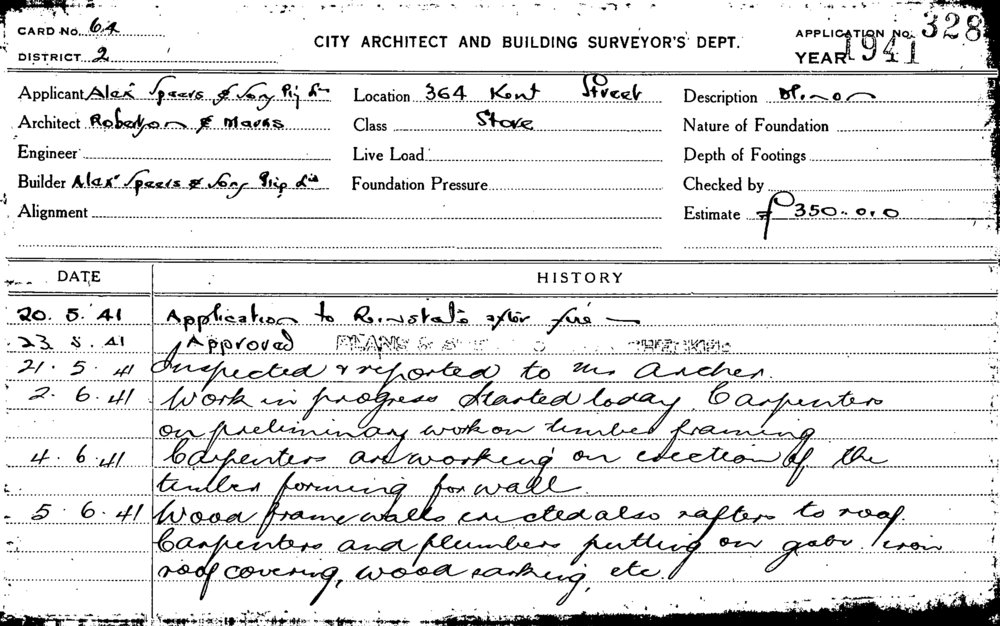 CARD No. 64
CITY ARCHITECT AND BUILDING SURVEYOR'S DEPT.
APPLICATION No. 328
DISTRICT 2
YEAR 1941
Applicant Alex Speers & Sons Pty Ltd
Location 364 Kent Street
Description
Architect Robertson & Marks
Class Store
Nature of Foundation
Engineer
Live Load
Depth of Footings
Builder Alex Speers & Sons Pty Ltd
Foundation Pressure
Checked by
Alignment
Estimate £350.0.0
DATE
HISTORY
20. 5. 41 Application to Reinstate after fire
23 5. 41 Approved PLANS &
21. 5. 41 Inspected & reported to Mr Archer.
2. 6. 41 Work in progress Started today Carpenters
on preliminary work on timber framing
4. 6. 41 Carpenters are working on erection of the
timber forming for wall
5. 6. 41 Wood frame walls erected also rafters to roof.
Carpenters and plumbers putting on galv. iron
roof covering, wood sarking, etc